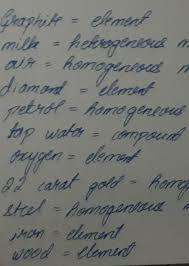 Graphite = element
milk = heterogeneous m
air = homogeneous m
diamond = element
petrol = homogeneous
tap water = compound
oxygen = element
22 carat gold = homog
steel = homogeneous m
iron = element
wood = element